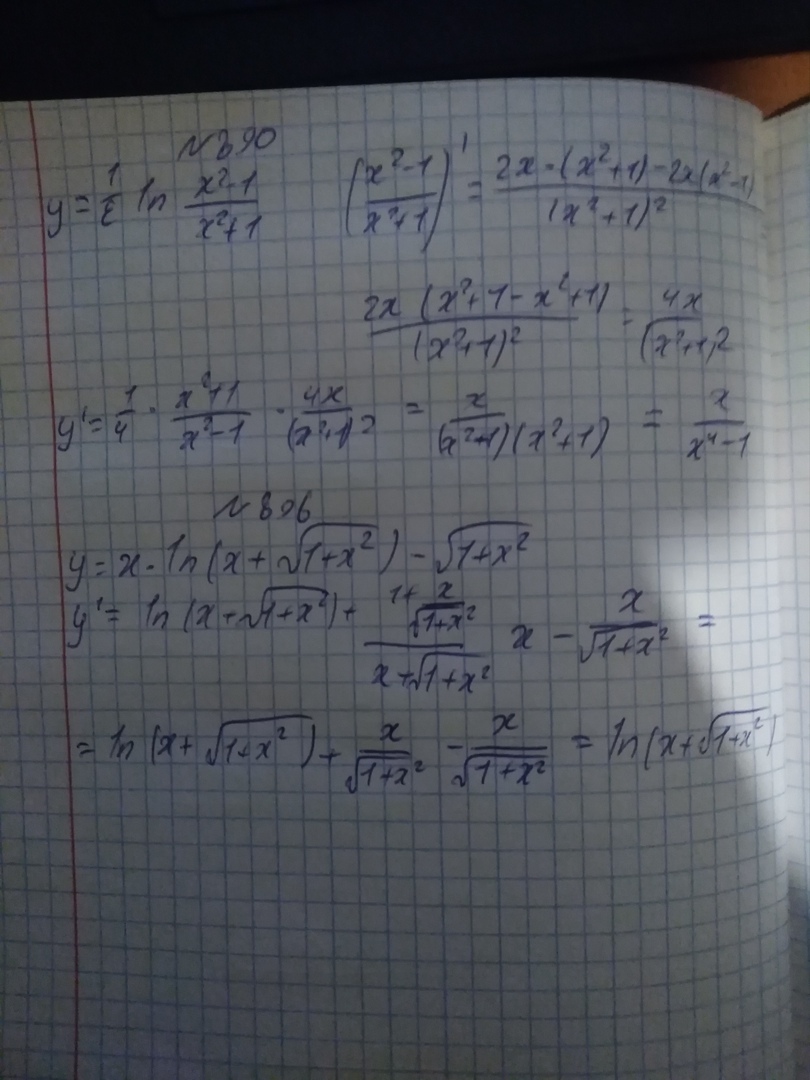 №890
y = 1/4 ln (x²-1)/(x²+1) ((x²-1)/(x²+1))' = (2x·(x²+1)-2x(x²-1))/(x²+1)²
(2x (x²+1-x²+1))/(x²+1)² = 4x/(x²+1)²
y' = 1/4 · (x²+1)/(x²-1) · 4x/(x²+1)² = x/((x²+1)(x²+1)) = x/(x⁴-1)
№896
y = x·ln(x+√(1+x²)) - √(1+x²)
y' = ln(x+√(1+x²)) + (1+x/√(1+x²))/(x+√(1+x²)) x - x/√(1+x²) =
= ln(x+√(1+x²)) + x/√(1+x²) - x/√(1+x²) = ln(x+√(1+x²))